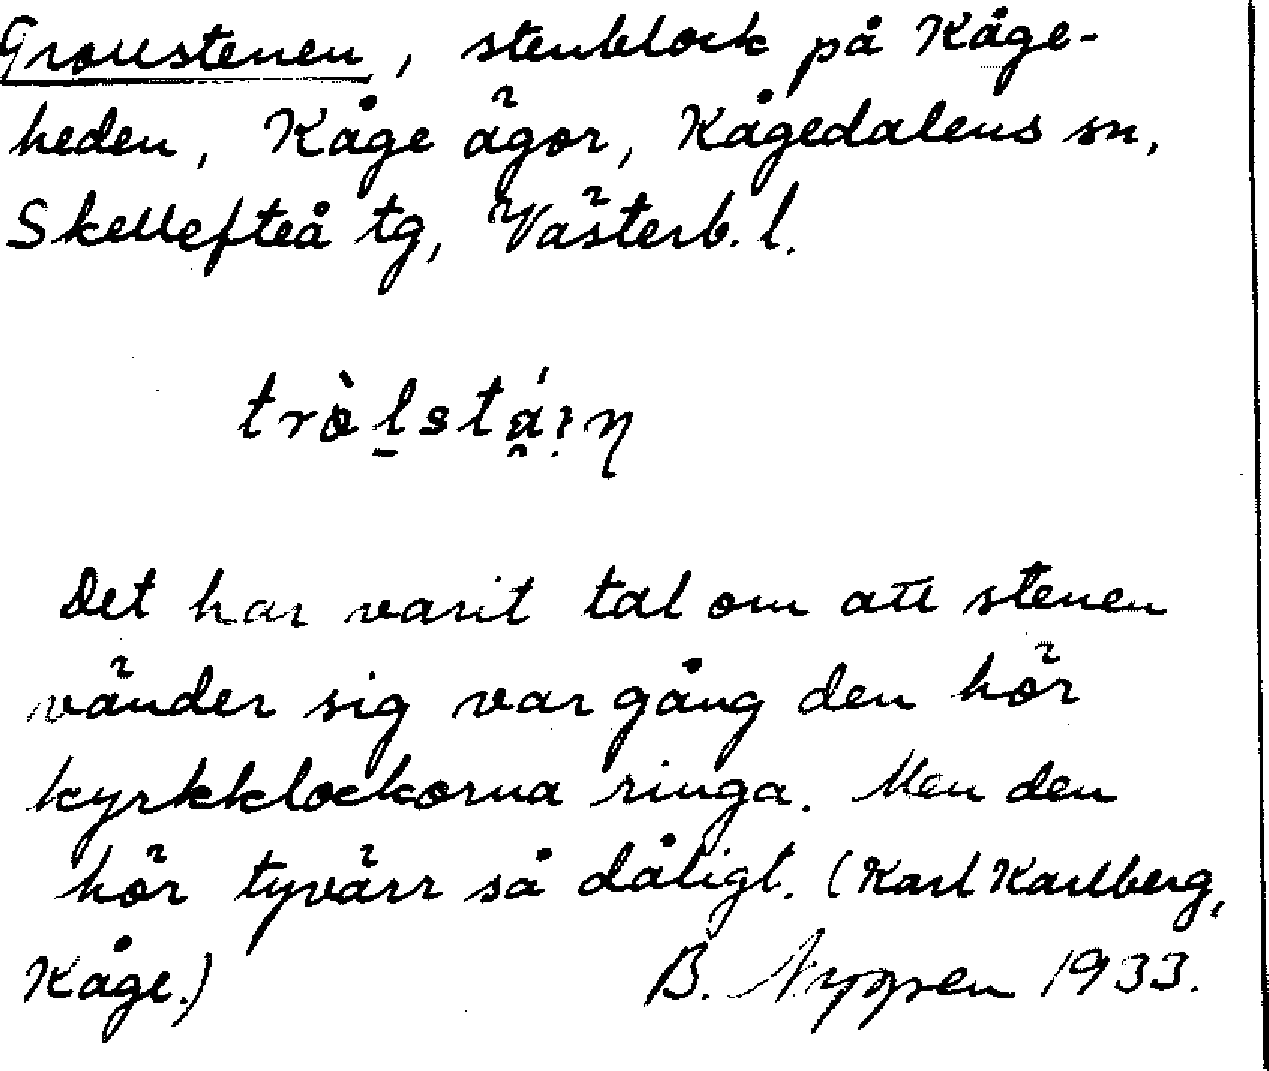 Trollstenen, stenblock på Kåge-
heden, Kåge ägor, Kågedalens sn,
Skellefteå tg, Västerb. l.
Det har varit tal om att stenen
vänder sig var gång den hör
kyrkklockorna ringa. Men den
hör tyvärr så dåligt. (Karl Karlberg,
Kåge.) B. Nygren 1933.